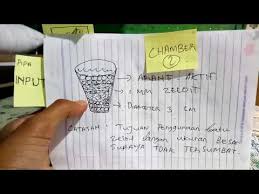 CHAMBER
2
APA
INPUT
AKTIF
1 MM ZEOLIT
DIAMETER 3 CM
CATATAN: TUJUAN PENGGUNAAN BATU
ZEOLIT DENGAN UKURAN BESAR
SUPAYA TIDAK TERSUMBAT